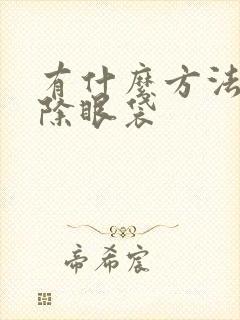 有什麼方法
除眼袋
帝希宸